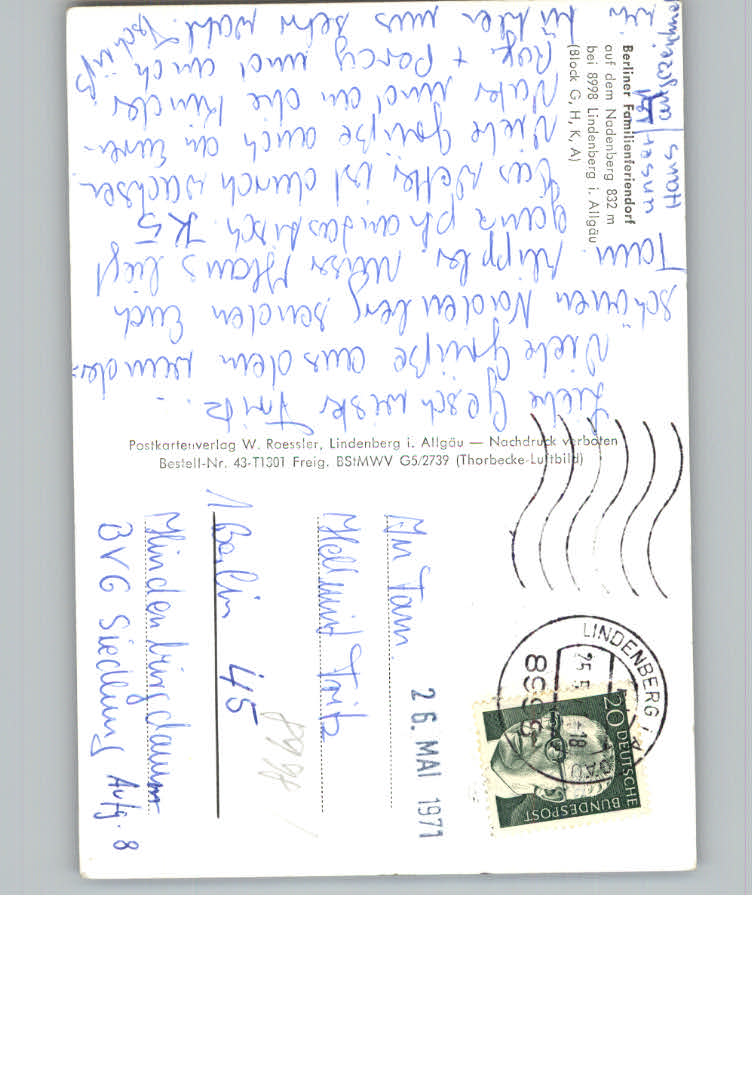 Berliner Familienferiendorf
auf dem Nadenberg 832 m
bei 8998 Lindenberg i. Allgäu
(Block G, H, K, A)
Liebe Geschwister Fritz.
Viele Grüße aus dem wunder-
schönen Nadenberg senden Euch
Fam. Unser Haus liegt
ganz phantastisch. K5
Das Wetter ist durchwachsen
Viele Grüße auch an Euren
Vater und an die Kinder
+ Percy und auch
wir fühlen uns sehr wohl. Tschüß
Haus
unser
Postkartenverlag W. Roessler, Lindenberg i. Allgäu — Nachdruck verboten
Bestell-Nr. 43-T1301 Freig. BStMWV G5/2739 (Thorbecke-Luftbild)
LINDENBERG i. A
8998
25.5.
-18
20 DEUTSCHE
BUNDESPOST
26. MAI 1971
An Fam.
Hellmut Fritz
1 Berlin 45
Hindenburgdamm
BVG Siedlung Aufg. 8